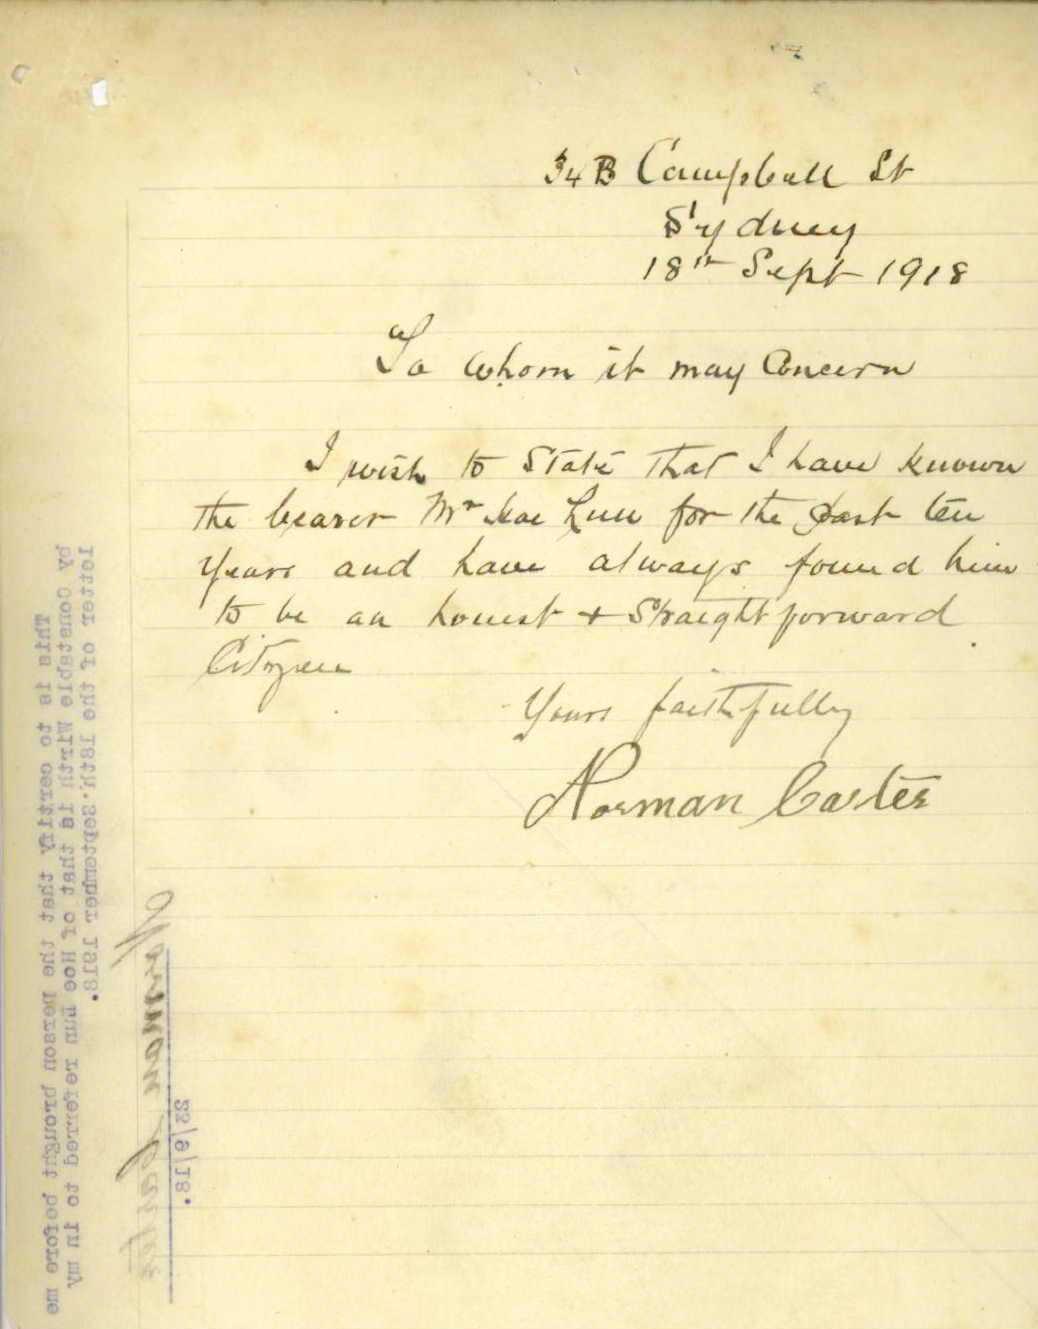 34 B Campbell St
Sydney
18th Sept 1918
To whom it may Concern
I wish to State that I have known
the bearer Mr Hoe Lun for the past ten
years and have always found him
to be an honest + Straightforward
Citizen
Yours faithfully
Norman Carter
This is to certify that the person brought before me
by Constable Wirth is that of Hoe Lun referred to in my
letter of the 18th.September 1918.
Norman Carter
23/9/18.